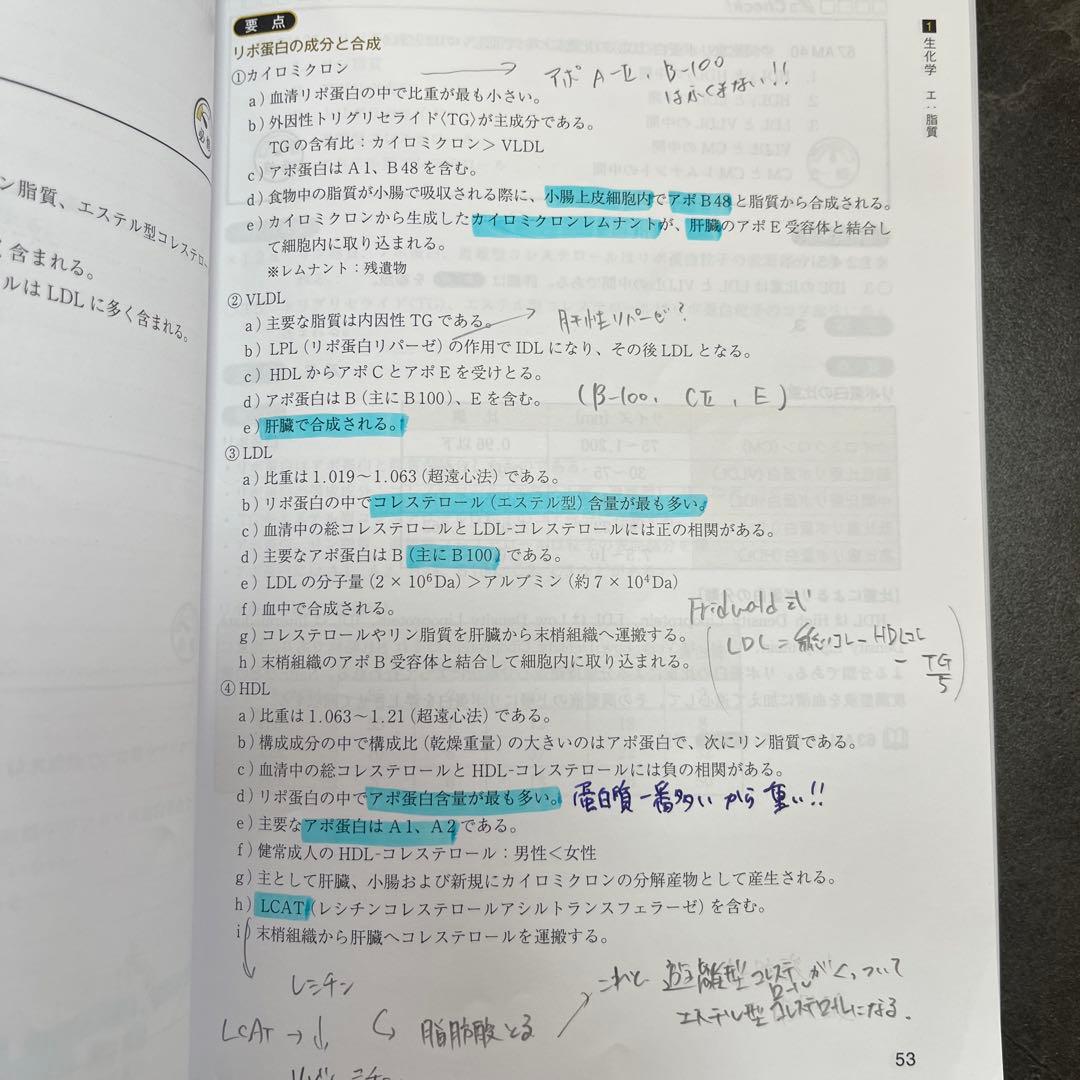 要点
リポ蛋白の成分と合成
①カイロミクロン
アポ A-Ⅱ、B-100
はふくまない!!
a)血清リポ蛋白の中で比重が最も小さい。
b)外因性トリグリセライド〈TG〉が主成分である。
TGの含有比:カイロミクロン>VLDL
c)アポ蛋白はA1、B48を含む。
d)食物中の脂質が小腸で吸収される際に、小腸上皮細胞内でアポB48と脂質から合成される。
e)カイロミクロンから生成したカイロミクロンレムナントが、肝臓のアポE受容体と結合し
て細胞内に取り込まれる。
※レムナント:残遺物
②VLDL
a)主要な脂質は内因性TGである。
肝性リパーゼ?
b)LPL(リポ蛋白リパーゼ)の作用でIDLになり、その後LDLとなる。
c)HDLからアポCとアポEを受けとる。
d)アポ蛋白はB(主にB100)、Eを含む。
(B-100、CⅡ、E)
e)肝臓で合成される。
③LDL
a)比重は1.019〜1.063(超遠心法)である。
b)リポ蛋白の中でコレステロール(エステル型)含量が最も多い。
c)血清中の総コレステロールとLDL-コレステロールには正の相関がある。
d)主要なアポ蛋白はB(主にB100)である。
e)LDLの分子量(2×10⁶Da)>アルブミン(約7×10⁴Da)
f)血中で合成される。
g)コレステロールやリン脂質を肝臓から末梢組織へ運搬する。
h)末梢組織のアポB受容体と結合して細胞内に取り込まれる。
Fridwald式
LDL=総コレ-HDLコレ
- TG/5
④HDL
a)比重は1.063〜1.21(超遠心法)である。
b)構成成分の中で構成比(乾燥重量)の大きいのはアポ蛋白で、次にリン脂質である。
c)血清中の総コレステロールとHDL-コレステロールには負の相関がある。
d)リポ蛋白の中でアポ蛋白含量が最も多い。
蛋白質一番多いから重い!!
e)主要なアポ蛋白はA1、A2である。
f)健常成人のHDL-コレステロール:男性<女性
g)主として肝臓、小腸および新規にカイロミクロンの分解産物として産生される。
h)LCAT(レシチンコレステロールアシルトランスフェラーゼ)を含む。
i)末梢組織から肝臓へコレステロールを運搬する。
レシチン
LCAT→↓
脂肪酸とる
これと遊離型コレステロールがくっついて
エステル型コレステロールになる。
53
1 生化学 エ:脂質
必修
ン脂質、エステル型コレステロー
含まれる。
ルはLDLに多く含まれる。